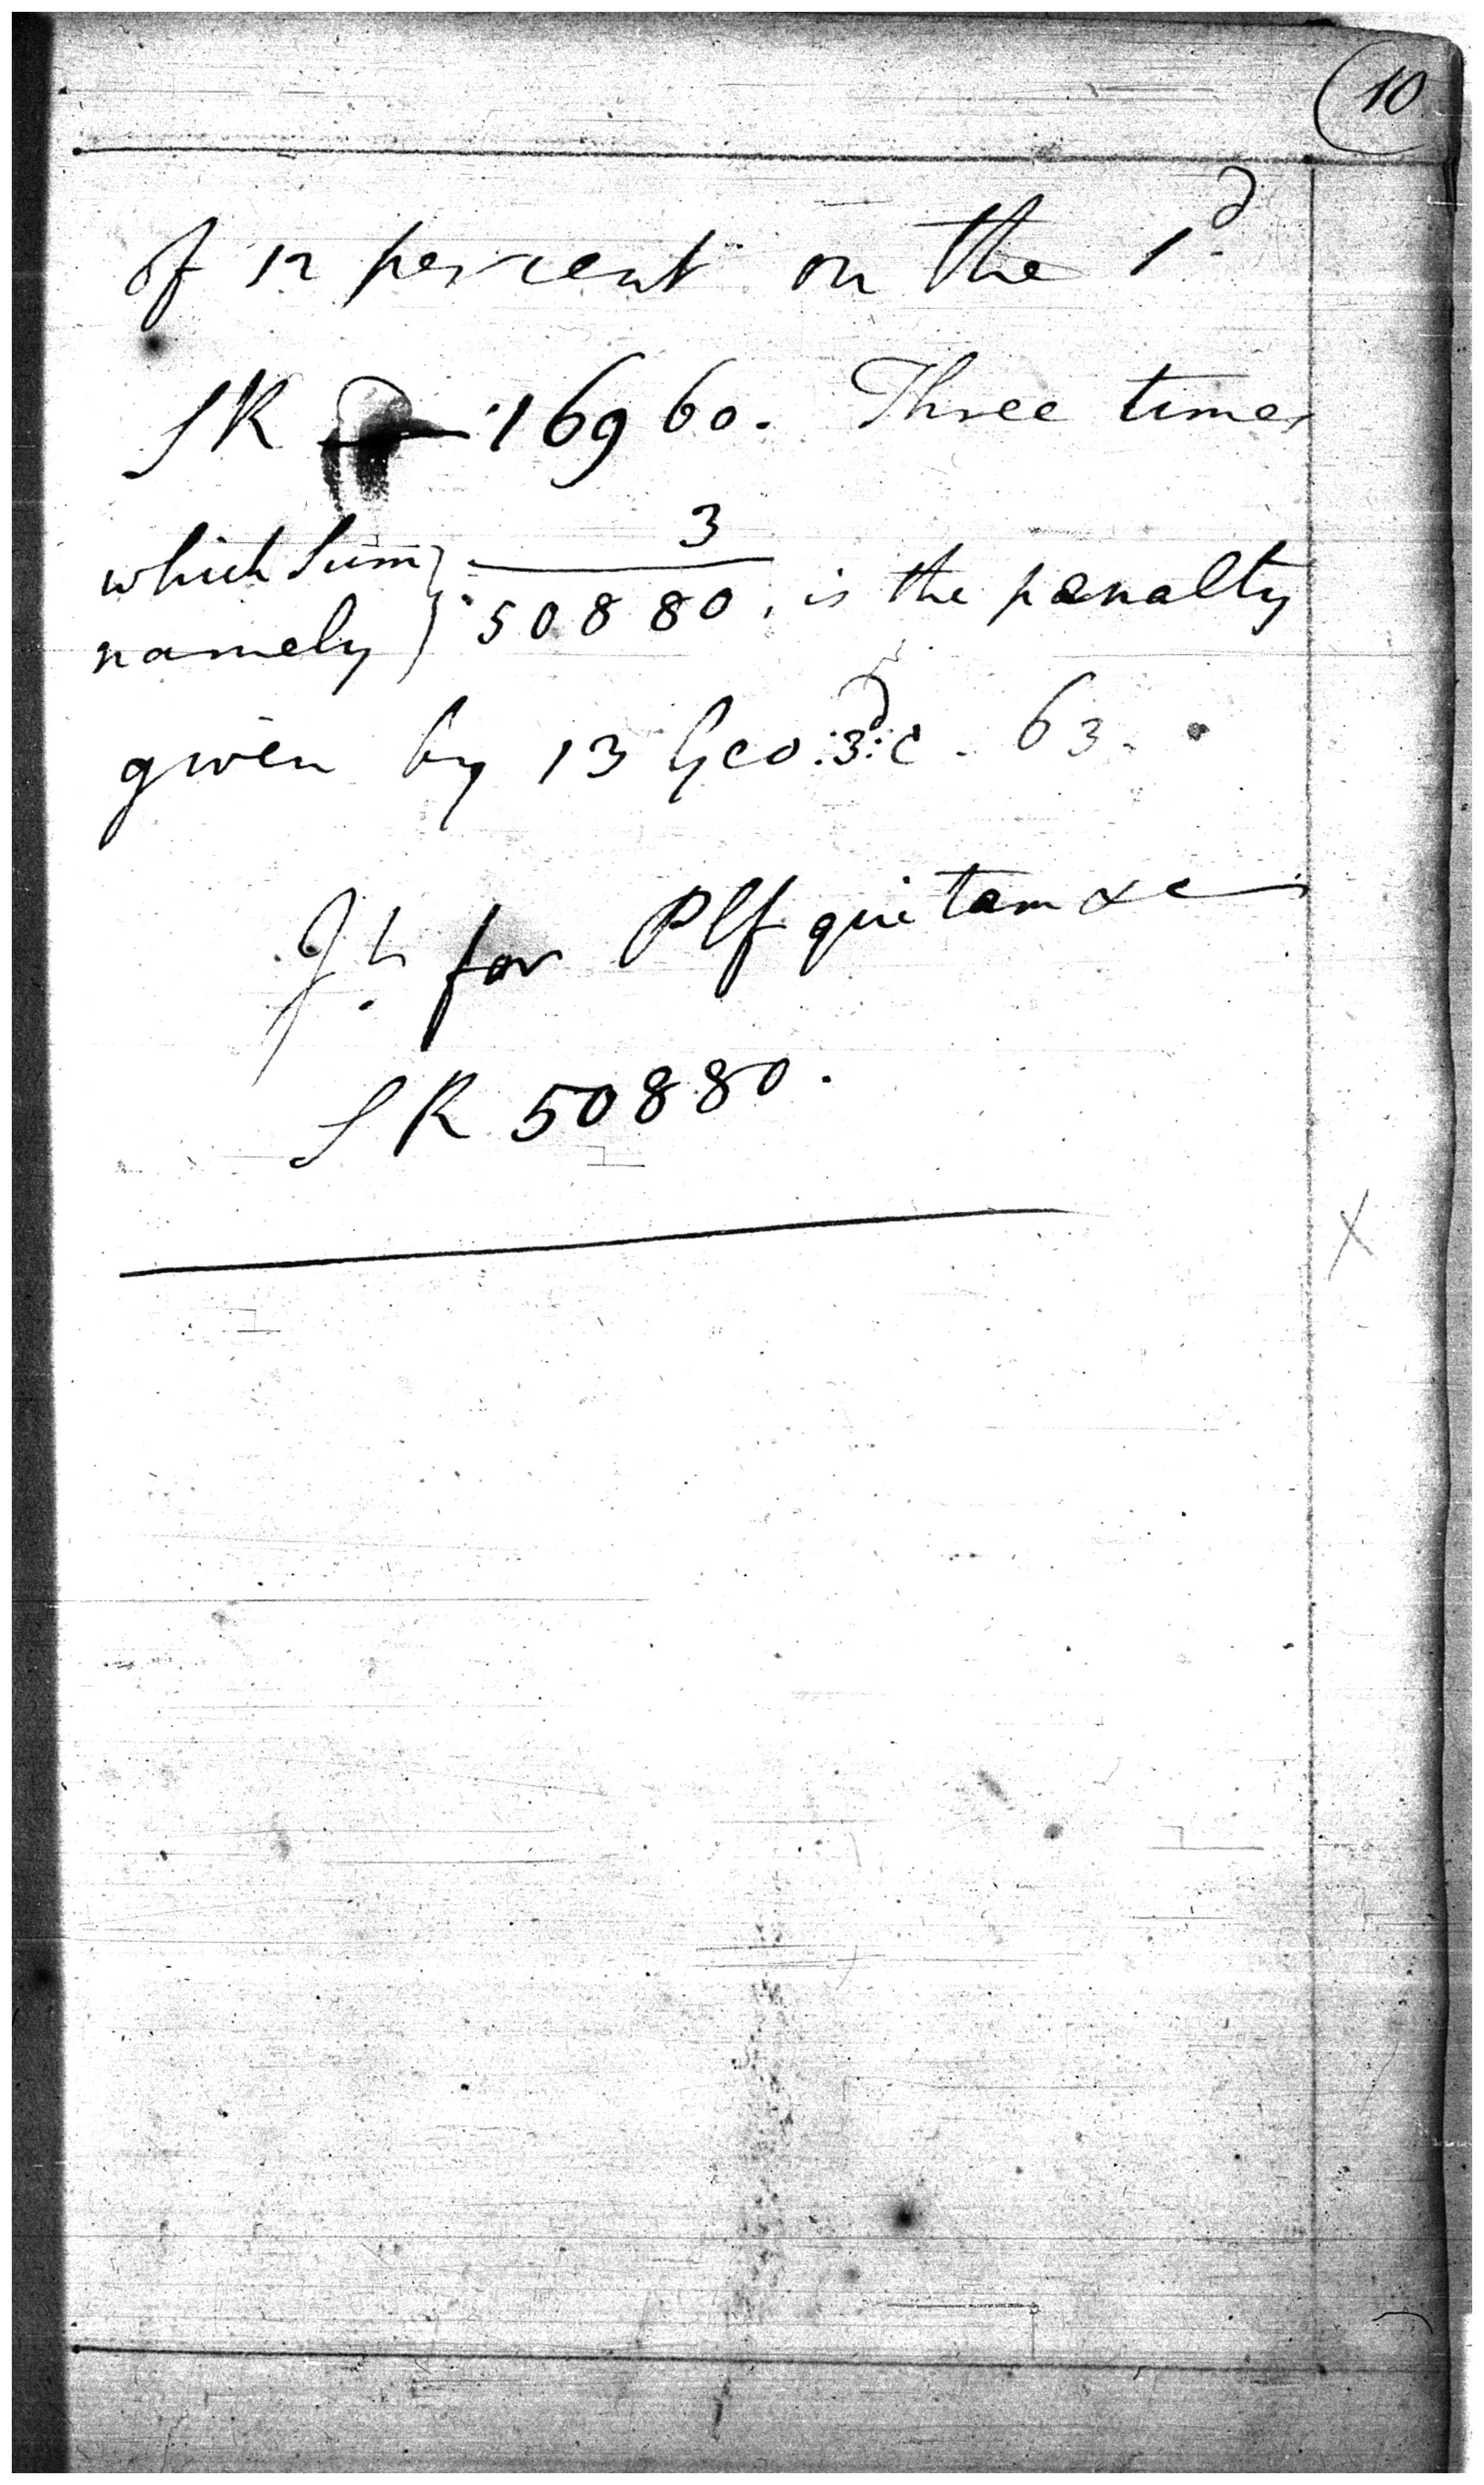 (10
of 12 percent on the 1.d
SR 16960. Three times
3
which Sum } 50880, is the penalty
namely }
given by 13 Geo: 3:d c. 63.
Jt. for Plf qui tam &c
SR 50880.
X